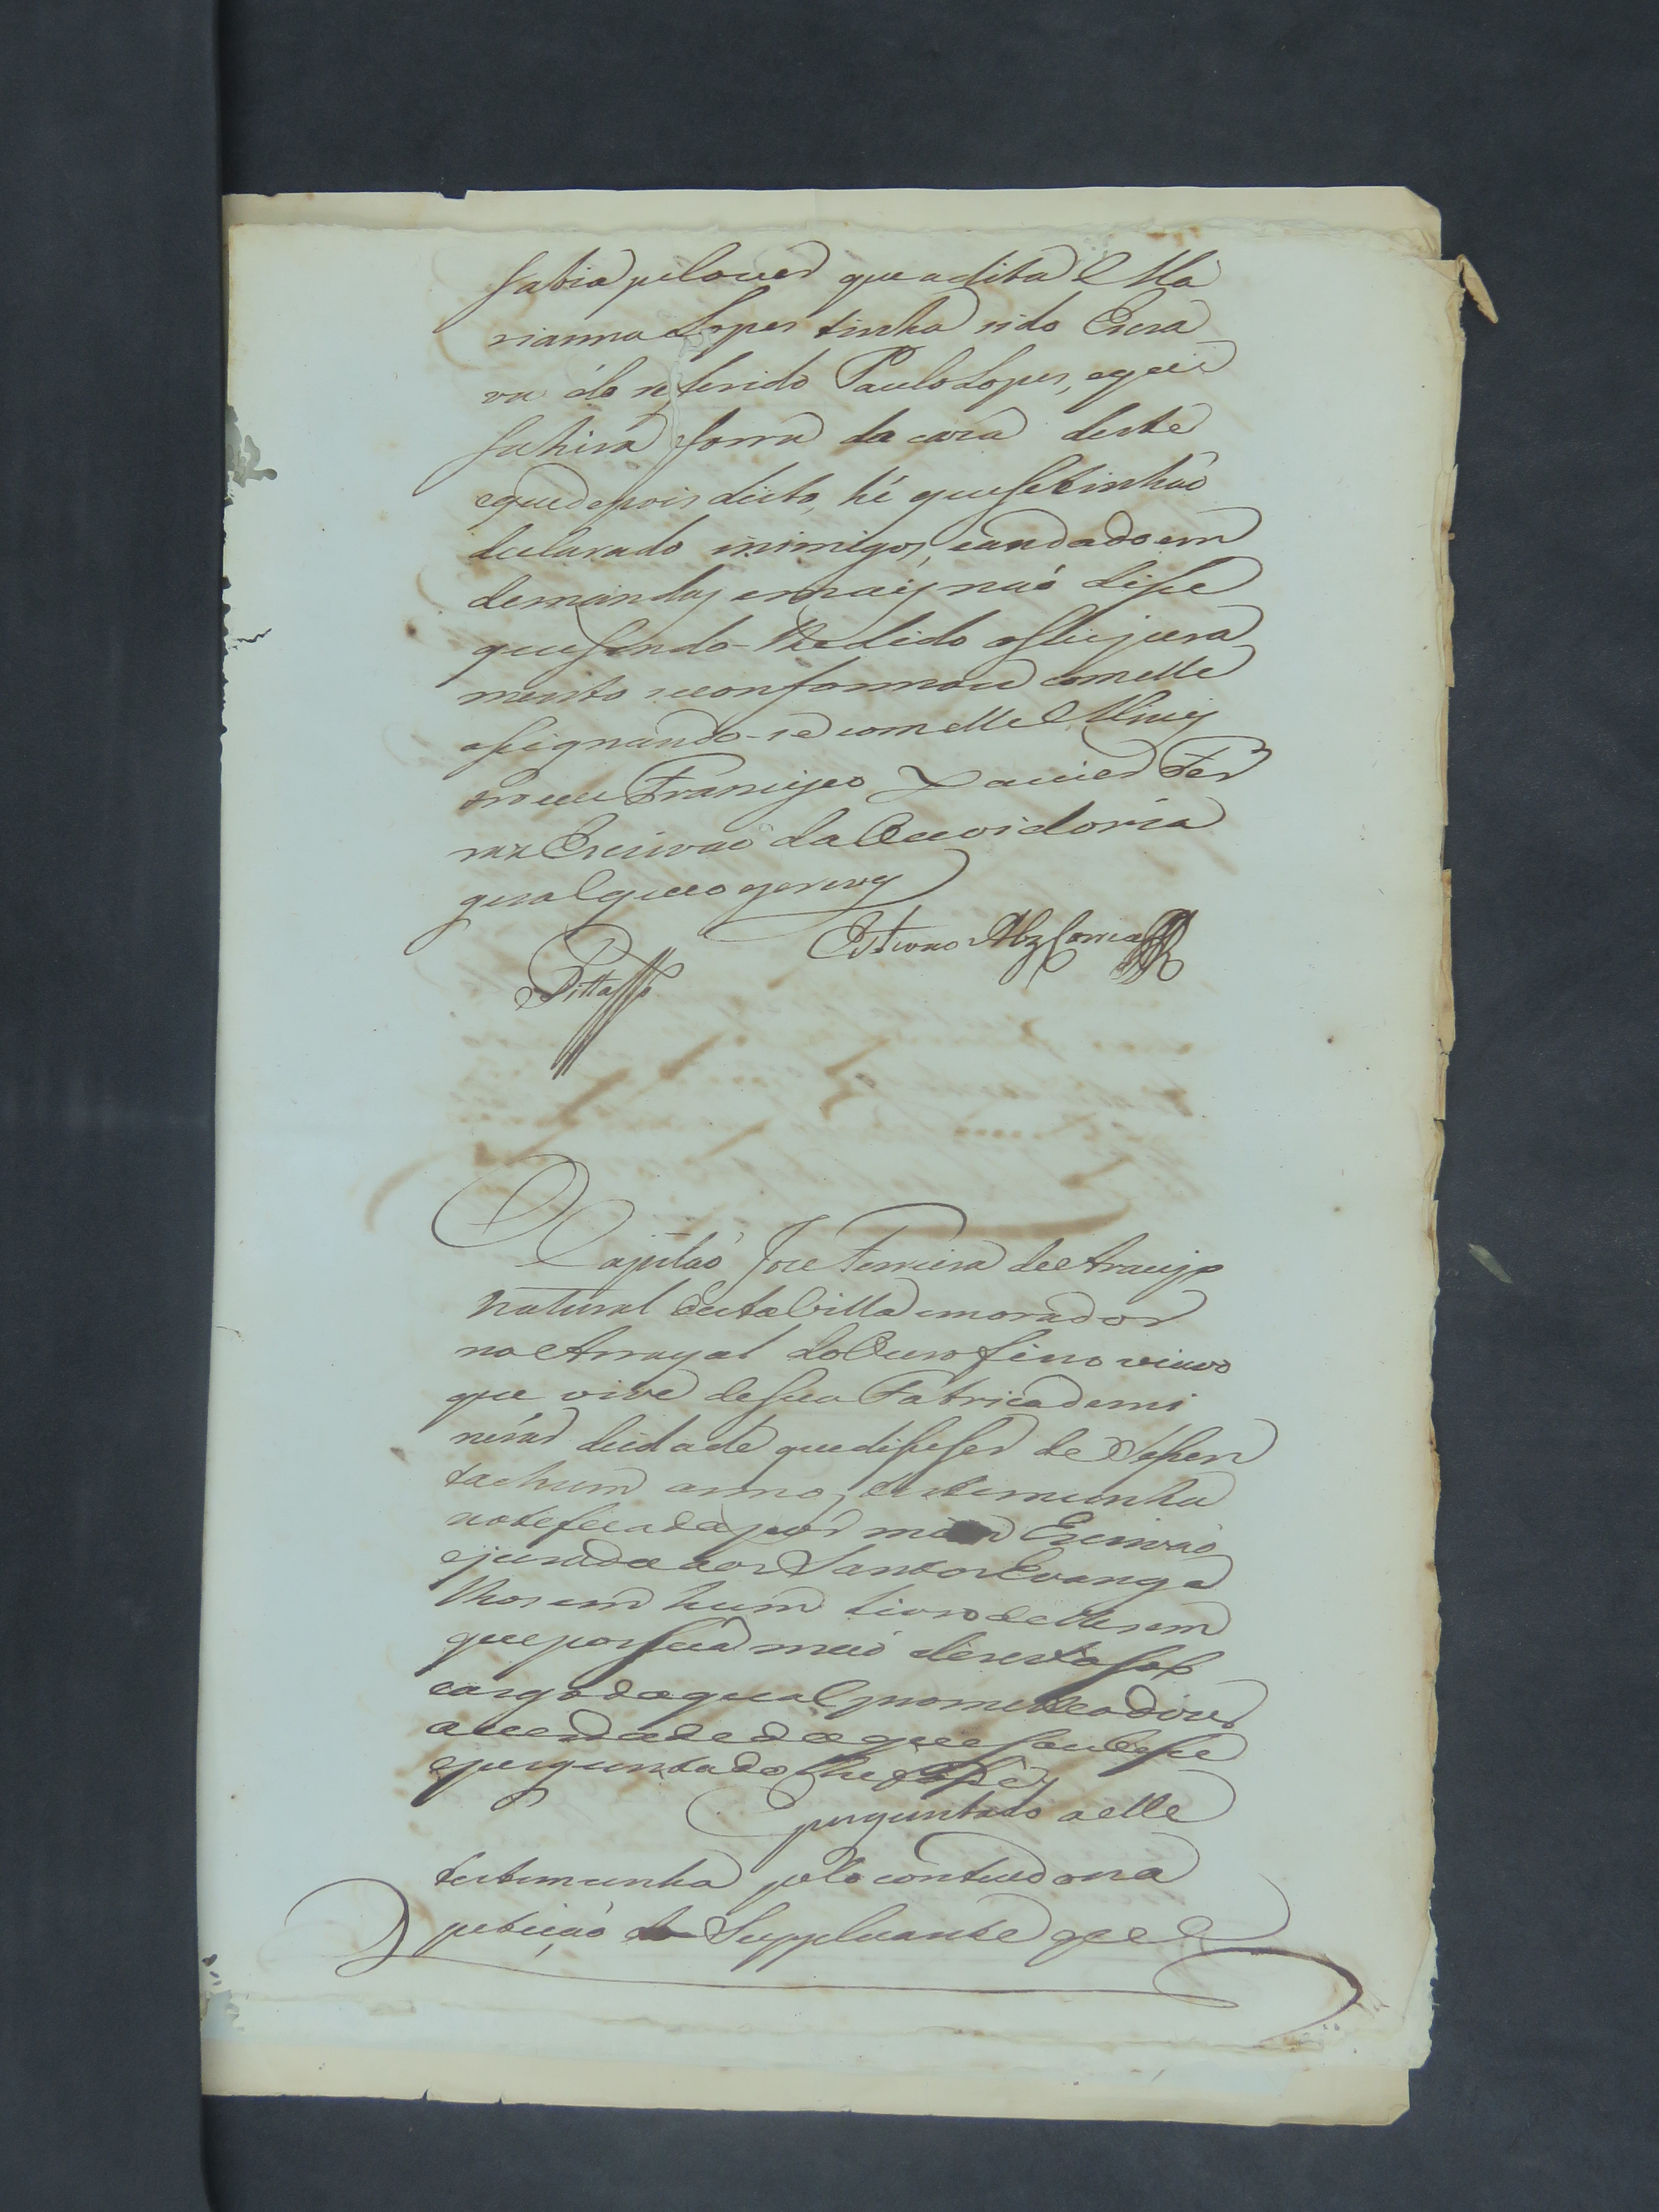 sabia pelo ver que a dita Ma
rianna Lopes tinha sido Escra
va do referido Paulo Lopes, e que
sahira forra da caza deste
e que depois disto, hé que se tinhaõ
declarado inimigos, e andado em
demandas, e mais naõ disse
que sendo-lhe lido o seu jura
mento se conformou com elle
assignando-se com elle Minis
tro eu Francisco Xavier Fer
raz Escrivaõ da Ouvidoria
geral que o escrevy
Estevao Alz Correa
Pitta
O Capitaõ Joze Ferreira de Araujo
natural desta Villa e morador
no Arrayal do Ouro fino viuvo
que vive de sua Fabrica de mi
nerar de idade que disse ser de Sessen
ta e hum annos, testemunha
notificada por mim Escrivaõ
e jurada aos Santos Evange
lhos em hum livro delles em
que pos sua maõ direita sob
cargo do qual prometteo dizer
a verdade do que soubesse
e perguntado lhe fosse
E perguntado a elle
testemunha pelo contiudo na
petiçaõ do Supplicante que